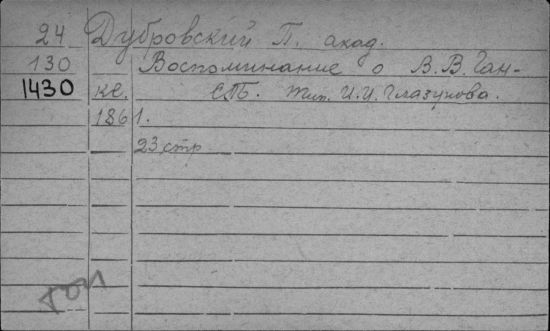 24 Дубровский П. акад.
130 Воспоминание о В.В. Ган-
1430 ке. СПБ. Тип. И.И. Глазунова.
1861.
23 стр